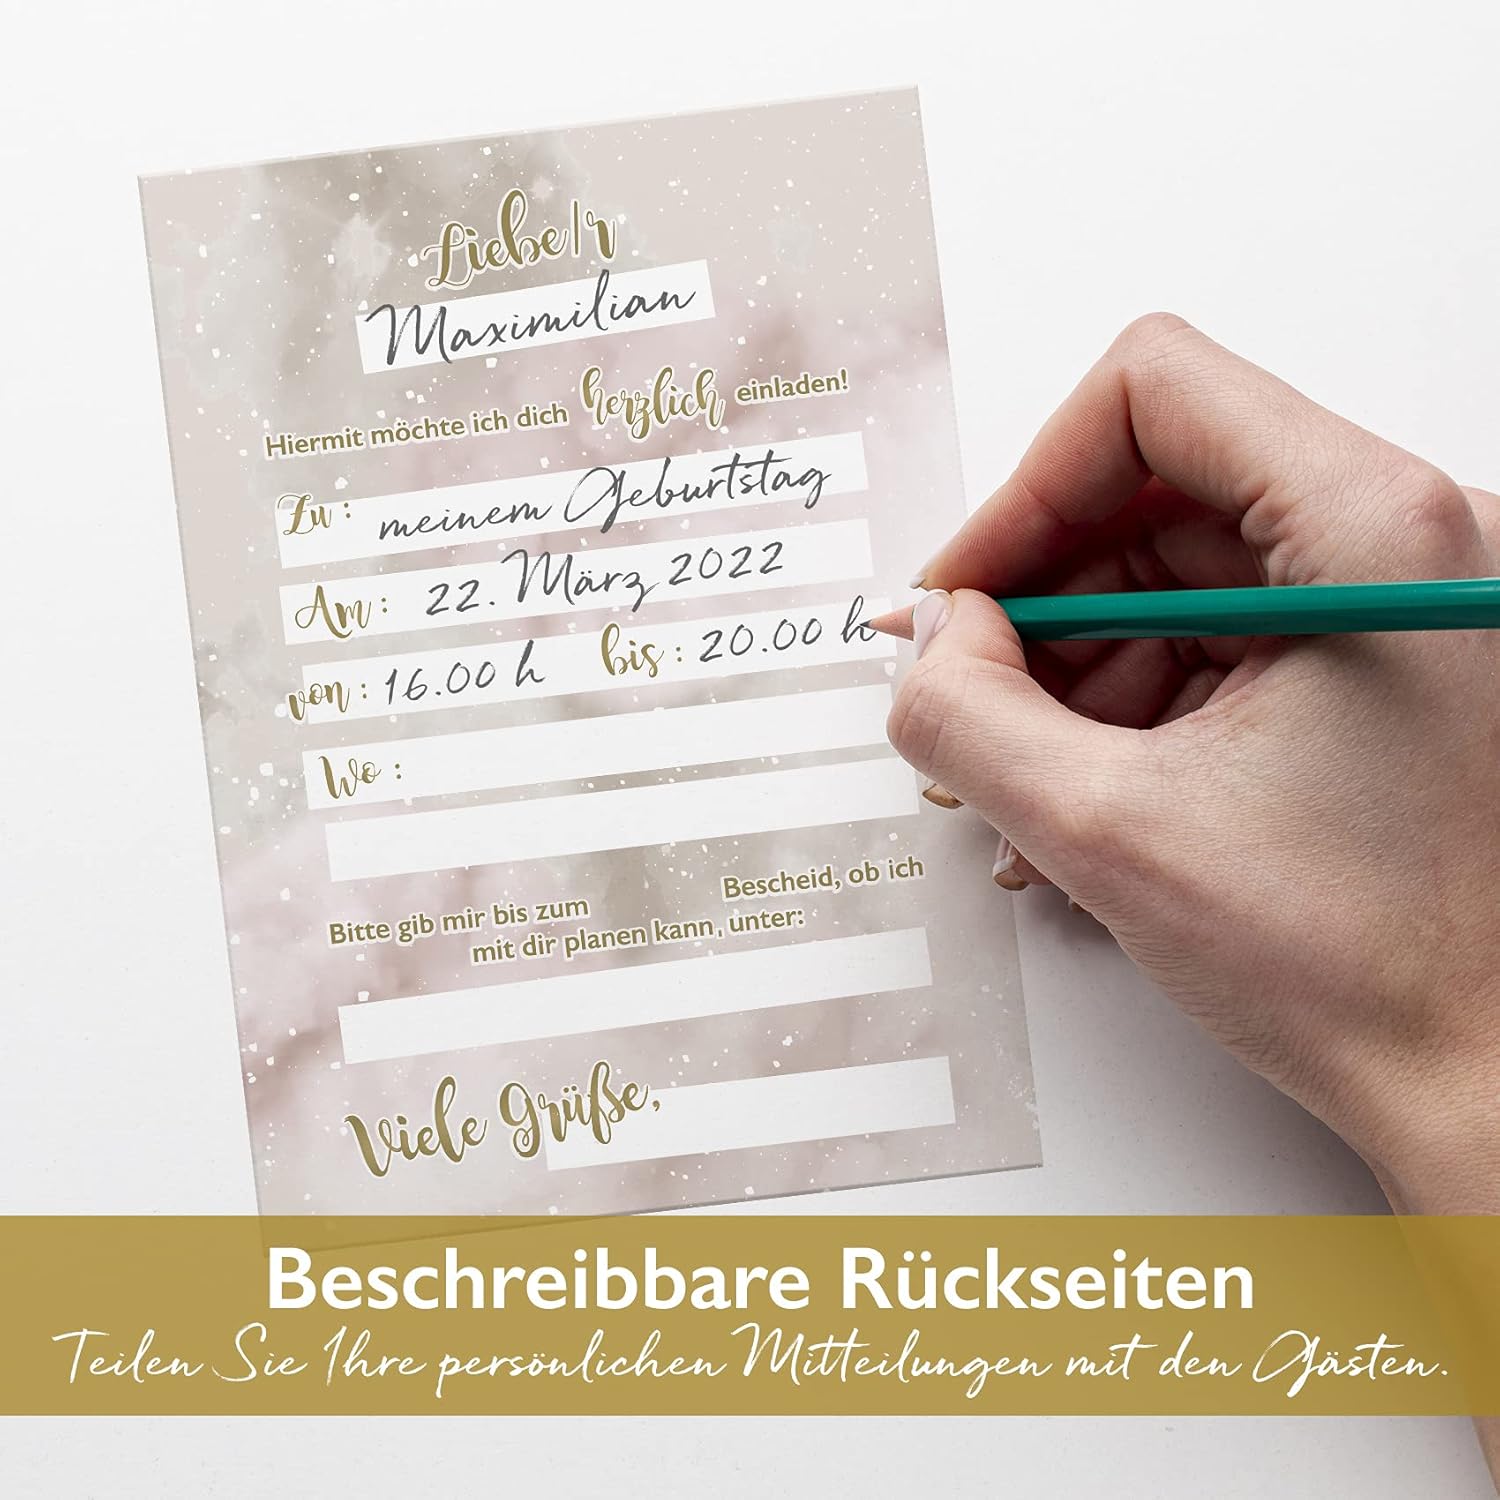 Liebe/r
Maximilian
Hiermit möchte ich dich herzlich einladen!
Zu : meinem Geburtstag
Am : 22. März 2022
von : 16.00 h bis : 20.00 h
Wo :
Bitte gib mir bis zum Bescheid, ob ich
mit dir planen kann, unter:
Viele Grüße,
Beschreibbare Rückseiten
Teilen Sie Ihre persönlichen Mitteilungen mit den Gästen.